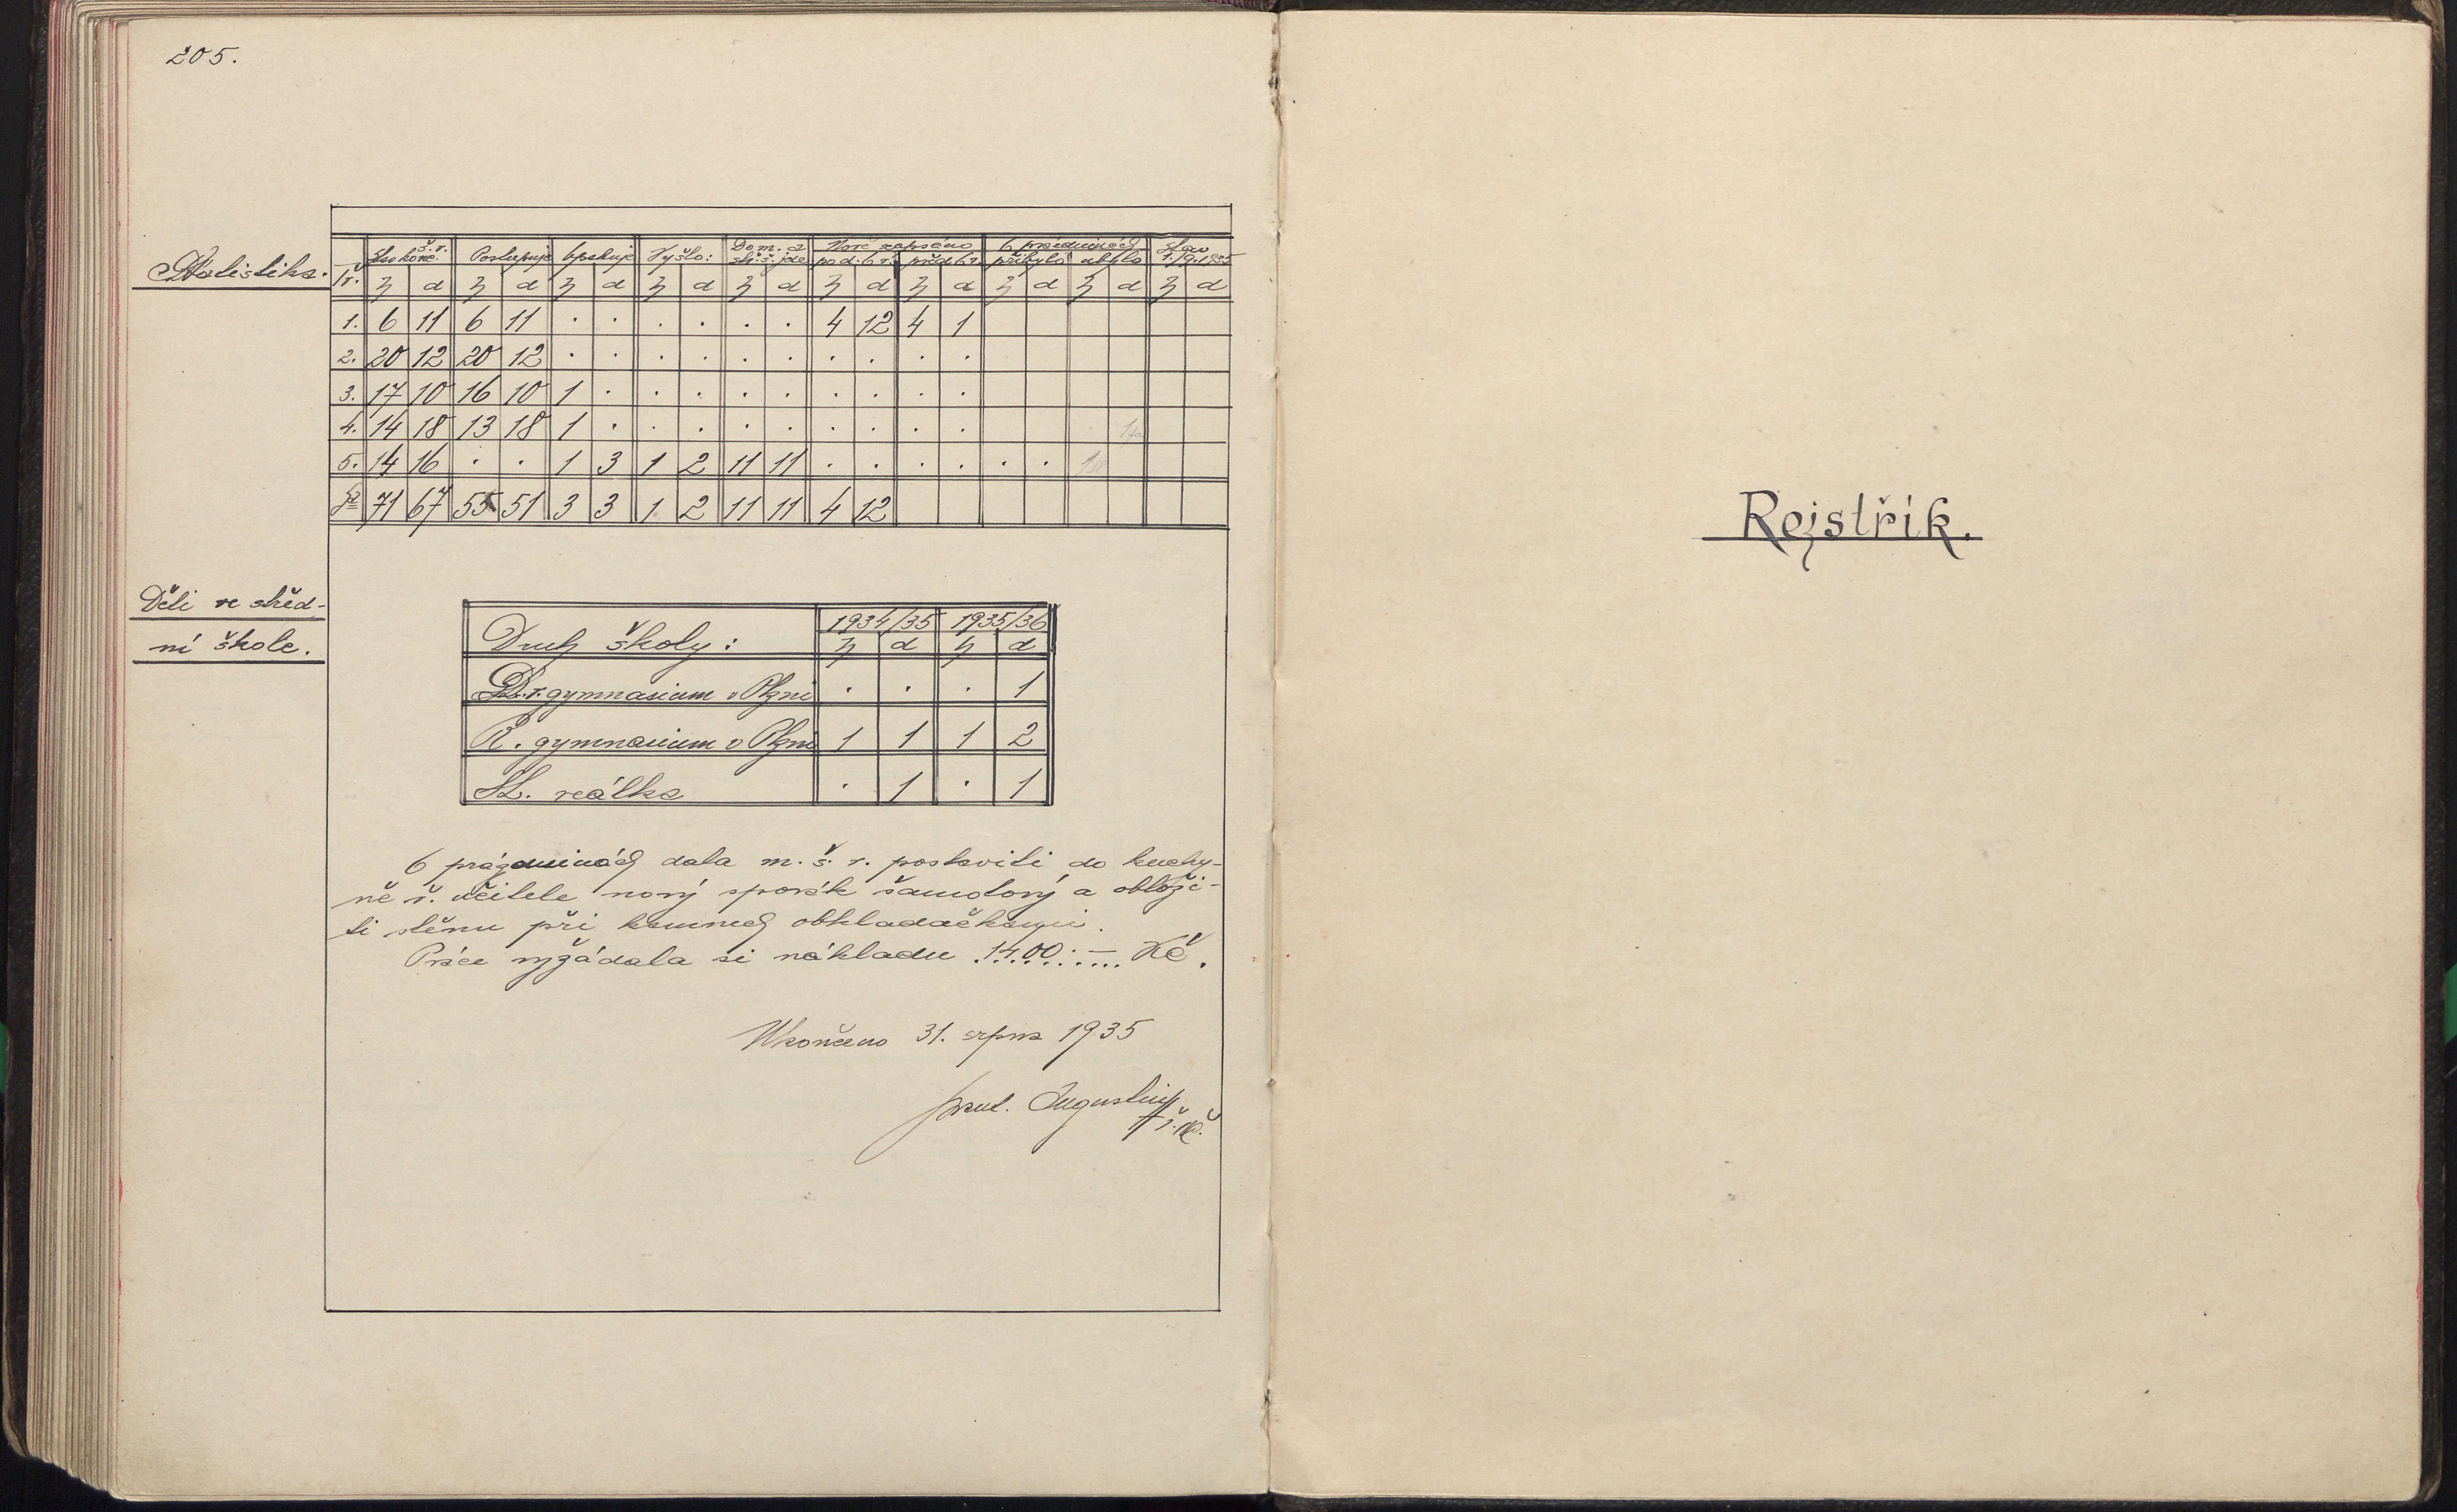 205.
Statistika.
Tř. Ku konc. š. r. Postupuje Opakuje Vyšlo: Do m. a stř. š. jde Nově zapsáno pod. 6 r. před 6 r. O prázdninách přibylo ubylo Stav 1./9.1935
h d h d h d h d h d h d h d h d h d h d
1. 6 11 6 11 . . . . . . 4 12 4 1
2. 20 12 20 12 . . . . . . . . . .
3. 17 10 16 10 1 . . . . . . . . .
4. 14 18 13 18 1 . . . . . . . . .
5. 14 16 . . 1 3 1 2 11 11 . . . . . .
71 67 55 51 3 3 1 2 11 11 4 12
Děti ve střed-
ní škole.
Druh školy: 1934/35 1935/36
h d h d
D. r. gymnasium v Plzni . . . 1
R. gymnasium v Plzni 1 1 1 2
St. reálka . 1 . 1
O prázdninách dala m. š. r. postaviti do kuchy-
ně ř. učitele nový sporák šamotový a obloži-
ti stěnu při kamnech obkladačkami.
Práce vyžádala si nákladu 1400.— Kč.
Ukončeno 31. srpna 1935
Augustin
Rejstřík.